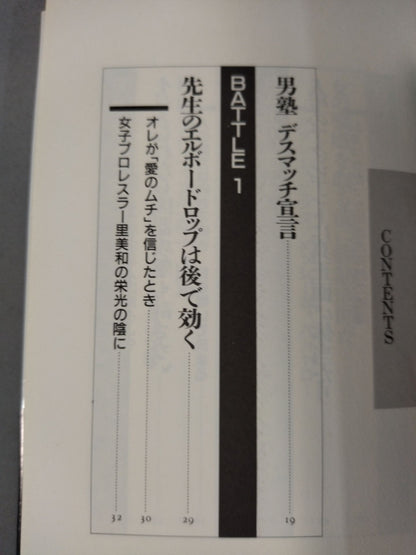 CONTENTS
男塾 デスマッチ宣言 19
BATTLE 1
先生のエルボードロップは後で効く 29
オレが「愛のムチ」を信じたとき 30
女子プロレスラー里美和の栄光の陰に 32